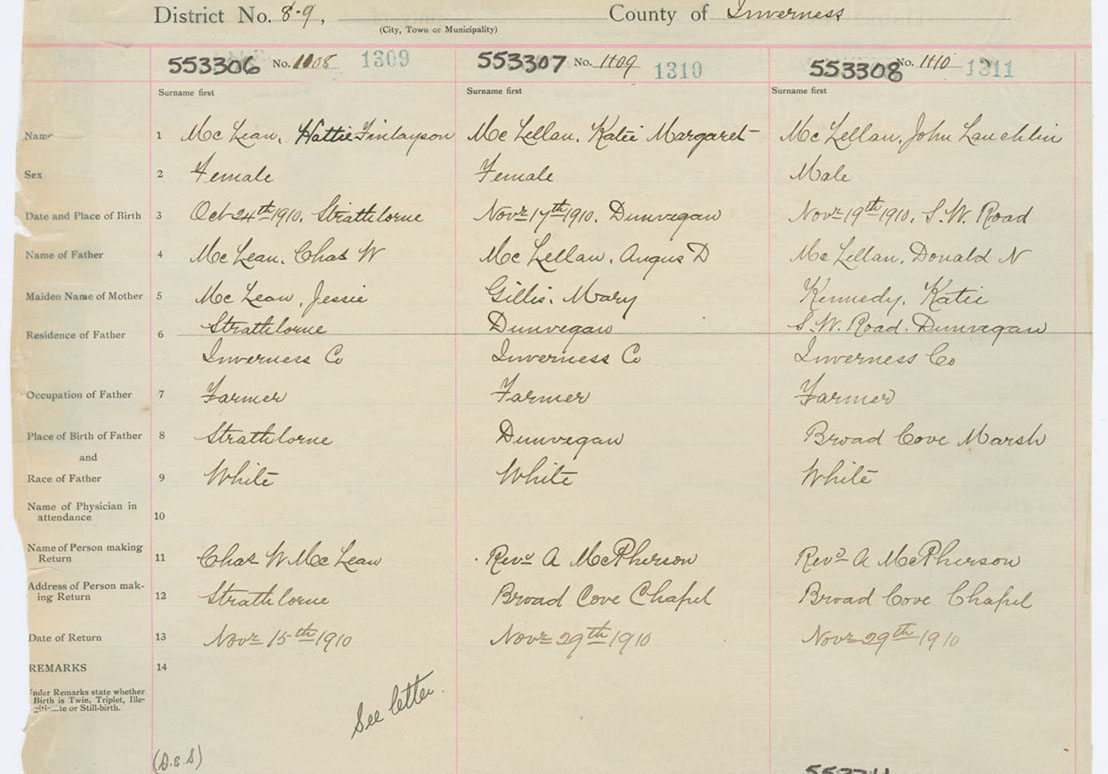 District No. 8-9, County of Inverness
(City, Town or Municipality)
553306 No. 1108 1309 553307 No. 1109 1310 553308 No. 1110 1311
Surname first Surname first Surname first
Name 1 McLean, Hattie Finlayson McLellan, Katie Margaret McLellan, John Lauchlin
Sex 2 Female Female Male
Date and Place of Birth 3 Oct 24th 1910. Strathlorne Novr 17th 1910. Dunvegan Novr 19th 1910. S.W. Road
Name of Father 4 McLean, Chas W McLellan, Angus D McLellan, Donald N
Maiden Name of Mother 5 McLean, Jessie Gillis, Mary Kennedy, Katie
Residence of Father 6 Strathlorne Dunvegan S.W. Road. Dunvegan
Inverness Co Inverness Co Inverness Co
Occupation of Father 7 Farmer Farmer Farmer
Place of Birth of Father 8 Strathlorne Dunvegan Broad Cove Marsh
and
Race of Father 9 White White White
Name of Physician in
attendance 10
Name of Person making
Return 11 Chas W McLean Revd A McPherson Revd A McPherson
Address of Person mak-
ing Return 12 Strathlorne Broad Cove Chapel Broad Cove Chapel
Date of Return 13 Novr 15th 1910 Novr 29th 1910 Novr 29th 1910
REMARKS 14
Under Remarks state whether
Birth is Twin, Triplet, Ille-
or Still-birth.
See letter.
(D.E.S)